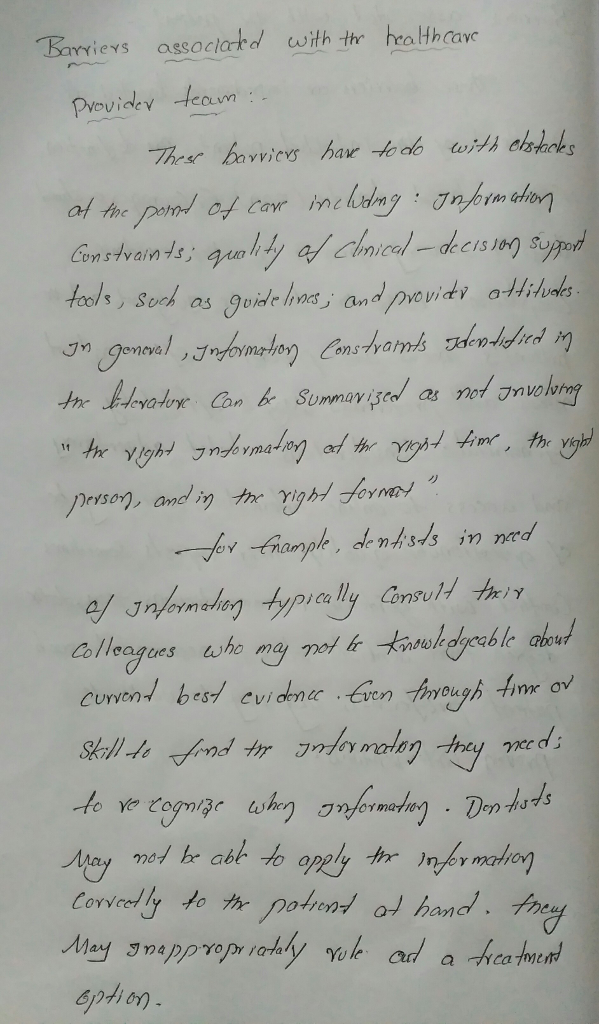 Barriers associated with the healthcare
Provider team :-
These barriers have to do with obstacles
at the point of care including : Information
Constraints; quality of Clinical - decision Support
tools, Such as guidelines; and provider attitudes.
In general, Information Constraints Identified in
the literature Can be Summarized as not Involving
" the right Information at the right time, the right
person, and in the right format ".
for Example, dentists in need
of Information typically Consult their
Colleagues who may not be Knowledgeable about
current best evidence. Even through time or
Skill to find the Information they need;
to recognize when Information. Dentists
May not be able to apply the information
Correctly to the patient at hand. they
May Inappropriataly rule out a treatment
option.